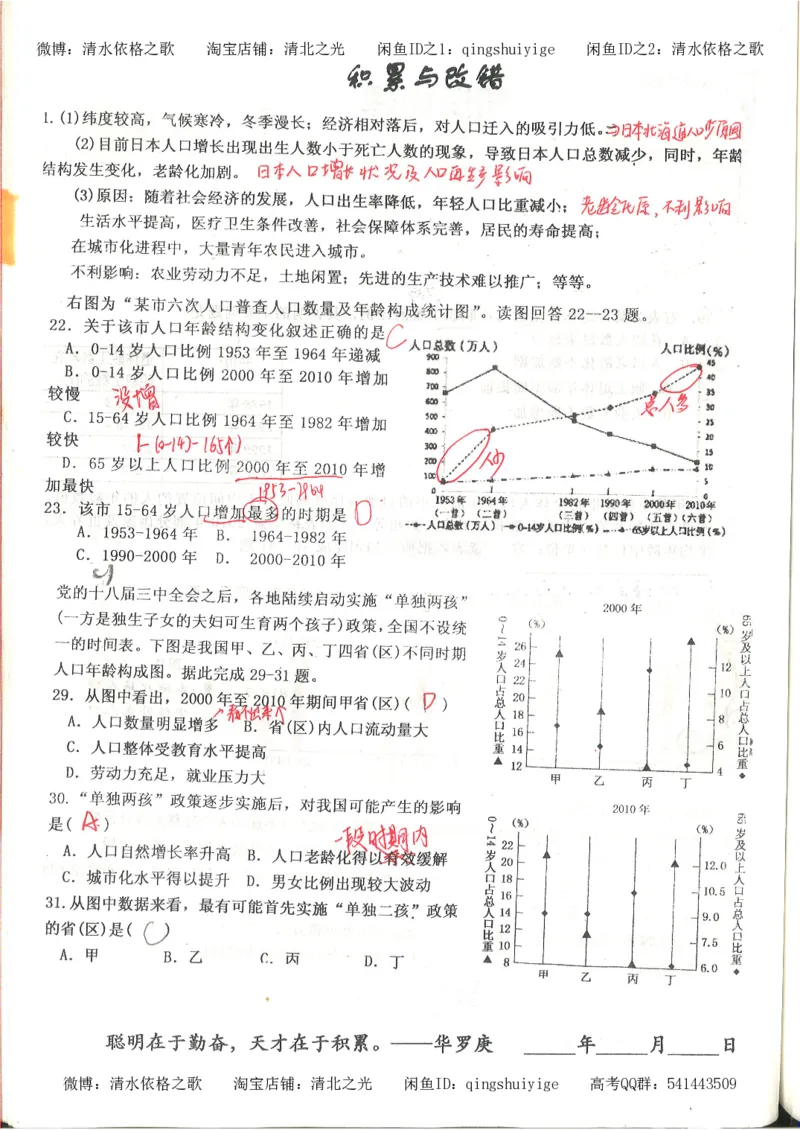 微博：清水依格之歌 淘宝店铺：清北之光 闲鱼ID之1：qingshuiyige 闲鱼ID之2：清水依格之歌
积累与改错
1.(1)纬度较高，气候寒冷，冬季漫长；经济相对落后，对人口迁入的吸引力低。→日本北海道人口少原因
(2)目前日本人口增长出现出生人数小于死亡人数的现象，导致日本人口总数减少，同时，年龄
结构发生变化，老龄化加剧。 日本人口增长状况及人口再生产影响
(3)原因：随着社会经济的发展，人口出生率降低，年轻人口比重减小； 老龄化原，不利影响
生活水平提高，医疗卫生条件改善，社会保障体系完善，居民的寿命提高；
在城市化进程中，大量青年农民进入城市。
不利影响：农业劳动力不足，土地闲置；先进的生产技术难以推广；等等。
右图为“某市六次人口普查人口数量及年龄构成统计图”。读图回答 22--23 题。
22．关于该市人口年龄结构变化叙述正确的是 C
A．0-14 岁人口比例 1953 年至 1964 年递减
B．0-14 岁人口比例 2000 年至 2010 年增加
较慢 没增
C．15-64 岁人口比例 1964 年至 1982 年增加
较快 1-(0-14)-(65个)
D．65 岁以上人口比例 2000 年至 2010 年增
加最快 1953-1964
23．该市 15-64 岁人口增加最多的时期是 D
A．1953-1964 年 B． 1964-1982 年
C．1990-2000 年 D． 2000-2010 年
人口总数（万人） 人口比例(%)
900 45
800 40
700 35
600 30
500 25
400 20
300 15
200 10
100 5
0 0
总人多
人少
1953年 1964年 1982年 1990年 2000年 2010年
(一普) (二普) (三普) (四普) (五普) (六普)
人口总数(万人) 0-14岁人口比例(%) 65岁以上人口比例(%)
党的十八届三中全会之后，各地陆续启动实施“单独两孩”
(一方是独生子女的夫妇可生育两个孩子)政策,全国不设统
一的时间表。下图是我国甲、乙、丙、丁四省(区)不同时期
人口年龄构成图。据此完成 29-31 题。
29．从图中看出，2000 年至 2010 年期间甲省(区)( D )
A．人口数量明显增多 B．省(区)内人口流动量大
C．人口整体受教育水平提高
D．劳动力充足，就业压力大
30.“单独两孩”政策逐步实施后，对我国可能产生的影响
是( A )
一段时期内
A．人口自然增长率升高 B．人口老龄化得以有效缓解
C．城市化水平得以提升 D．男女比例出现较大波动
31.从图中数据来看，最有可能首先实施“单独二孩”政策
的省(区)是( C )
A．甲 B．乙 C．丙 D．丁
2000 年
(%) (%)
0～14岁人口占总人口比重▲
26
24
22
20
18
16
14
12
12
10
8
6
4
65岁及以上人口占总人口比重◆
甲 乙 丙 丁
2010 年
(%) (%)
0～14岁人口占总人口比重▲
22
20
18
16
14
12
10
8
12.0
10.5
9.0
7.5
6.0
65岁及以上人口占总人口比重◆
甲 乙 丙 丁
聪明在于勤奋，天才在于积累。——华罗庚 ____年____月____日
微博：清水依格之歌 淘宝店铺：清北之光 闲鱼ID：qingshuiyige 高考QQ群：541443509